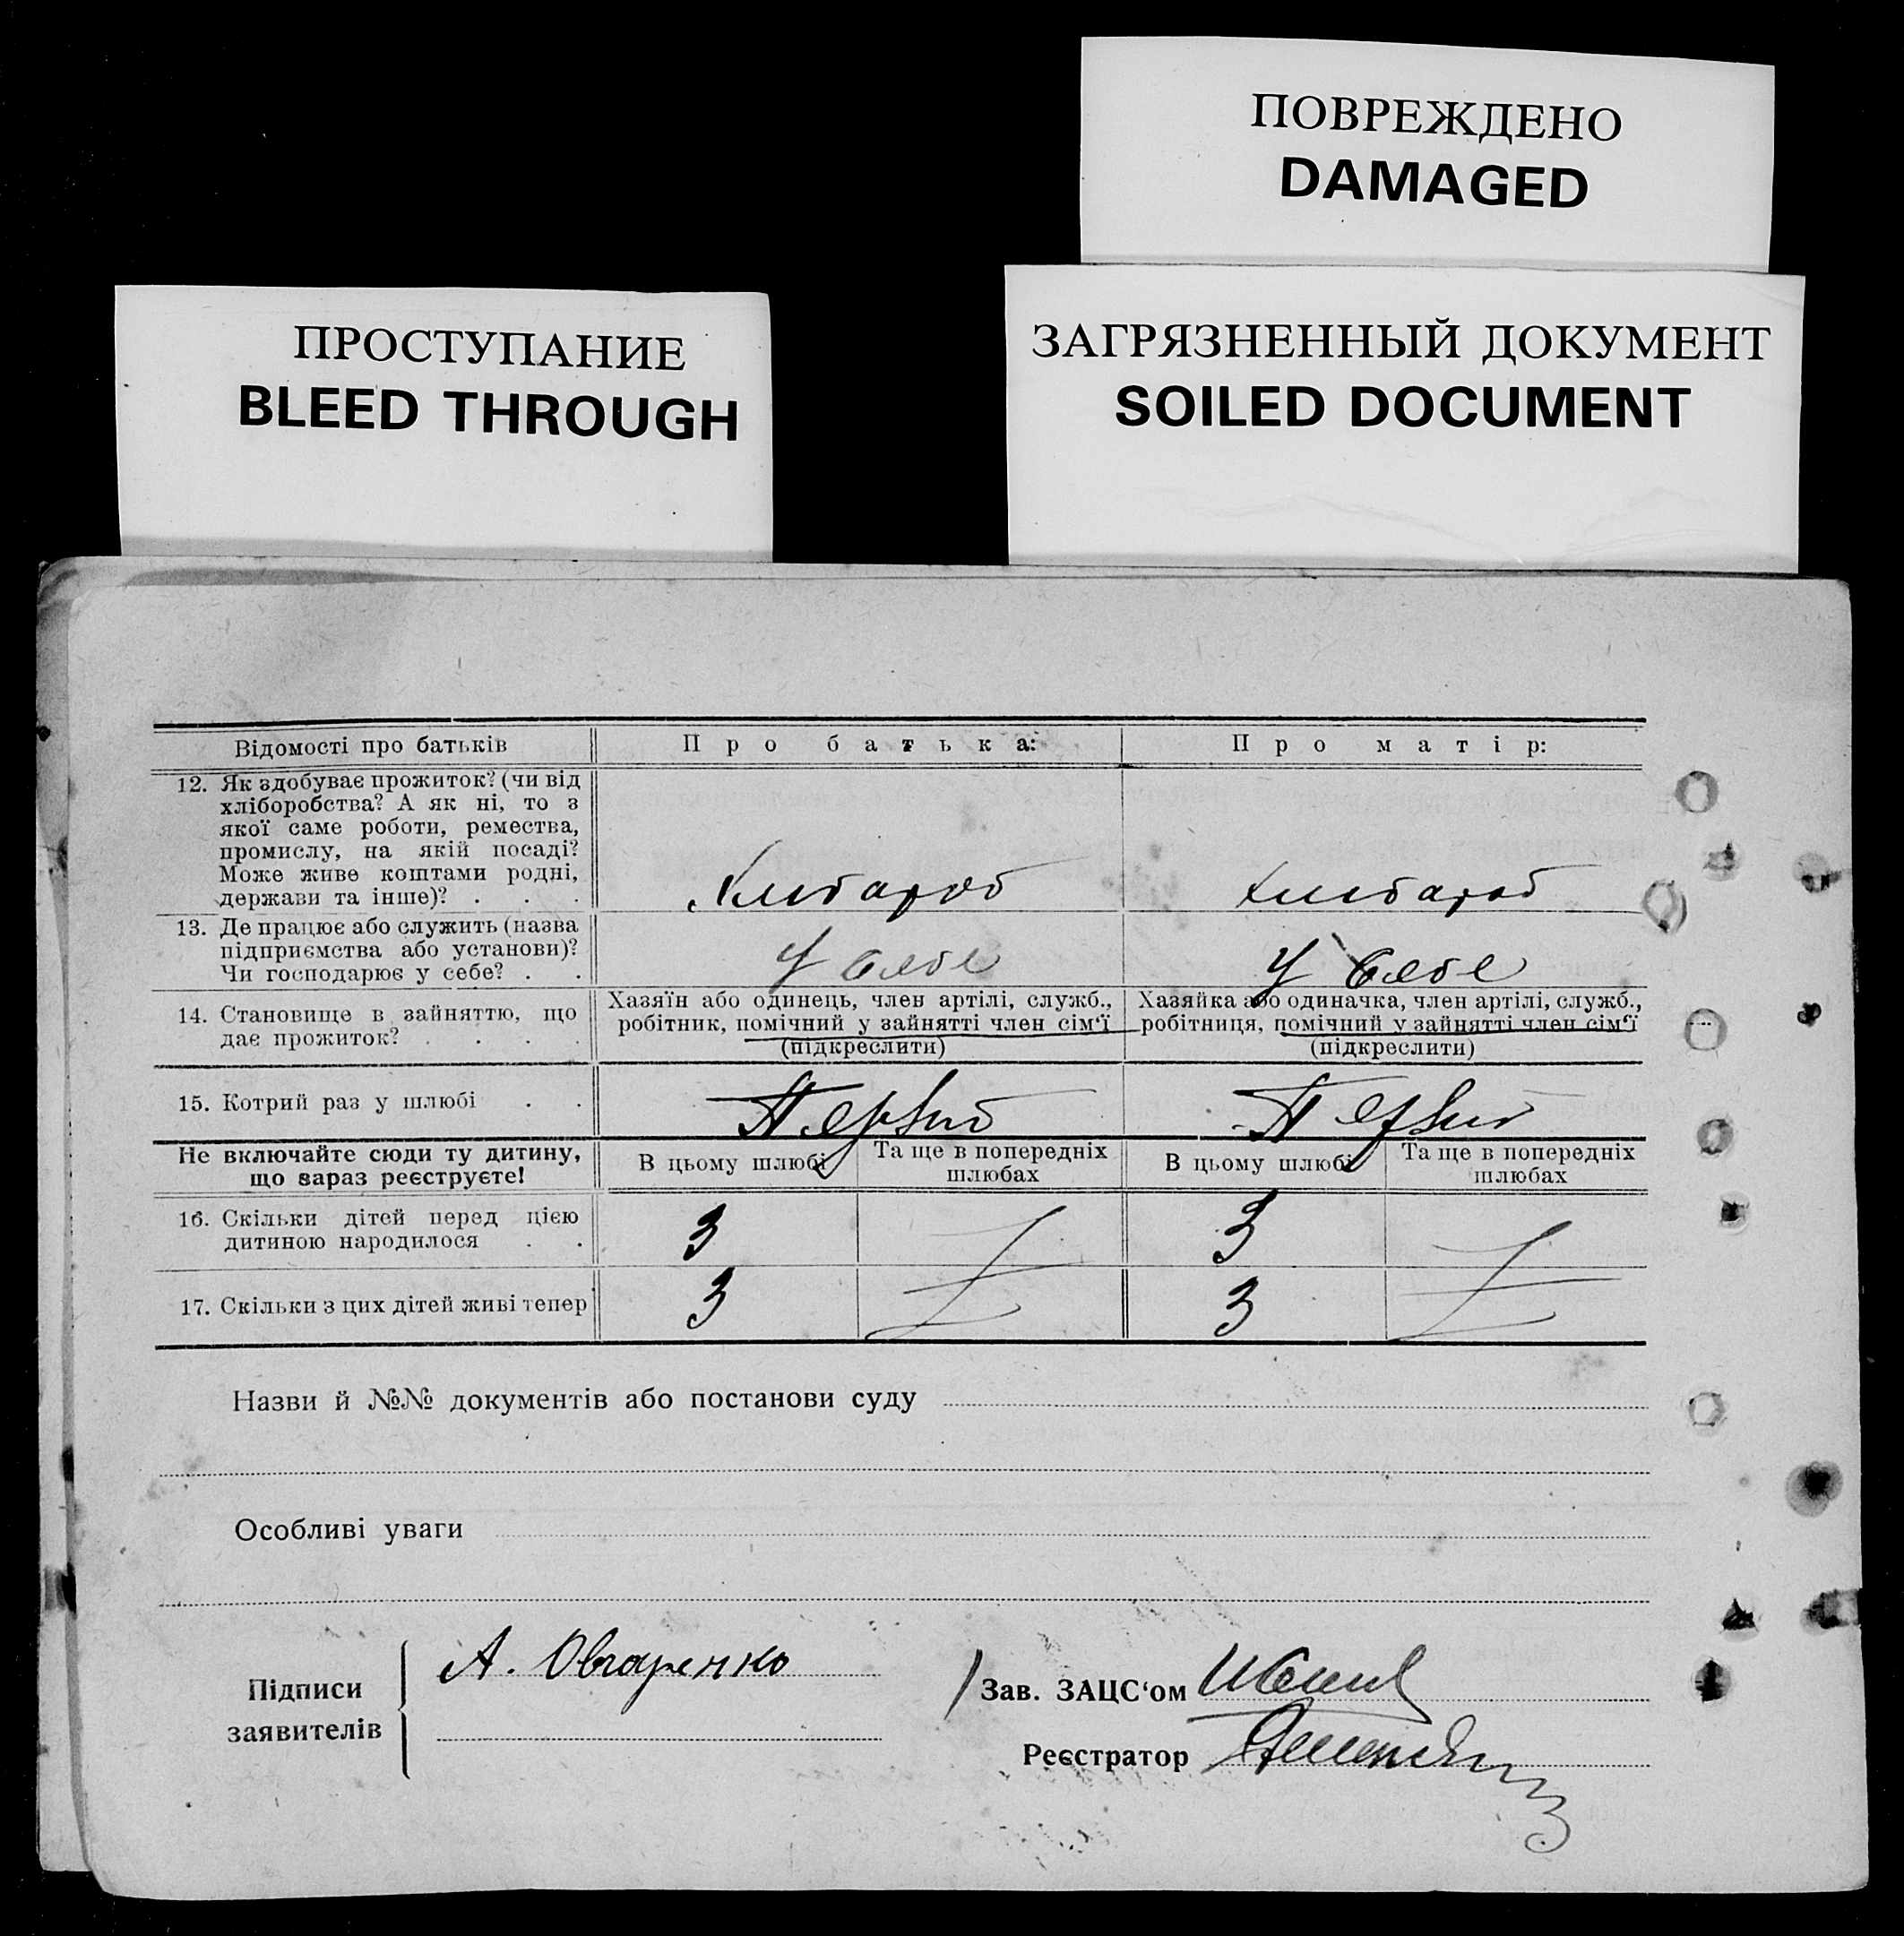 ПОВРЕЖДЕНО
DAMAGED
ПРОСТУПАНИЕ
BLEED THROUGH
ЗАГРЯЗНЕННЫЙ ДОКУМЕНТ
SOILED DOCUMENT
Відомості про батьків
Про батька:
Про матір:
12. Як здобуває прожиток? (чи від
хліборобства? А як ні, то з
якої саме роботи, ремества,
промислу, на якій посаді?
Може живе коштами родні,
держави та інше)? . . .
Хлибароб
Хлибароб
13. Де працює або служить (назва
підприємства або установи)?
Чи господарює у себе? . .
У себе
У себе
14. Становище в зайняттю, що
дає прожиток? . . . .
Хазяїн або одинець, член артілі, служб.,
робітник, помічний у зайнятті член сім'ї
(підкреслити)
Хазяйка або одиначка, член артілі, служб.,
робітниця, помічний у зайнятті член сім'ї
(підкреслити)
15. Котрий раз у шлюбі . .
Первий
Первий
Не включайте сюди ту дитину,
що зараз реєструєте!
В цьому шлюбі
Та ще в попередніх
шлюбах
В цьому шлюбі
Та ще в попередніх
шлюбах
16. Скільки дітей перед цією
дитиною народилося . .
3
3
17. Скільки з цих дітей живі тепер
3
3
Назви й №№ документів або постанови суду
Особливі уваги
Підписи
заявителів
А. Овчаренко
Зав. ЗАЦС'ом
Реєстратор